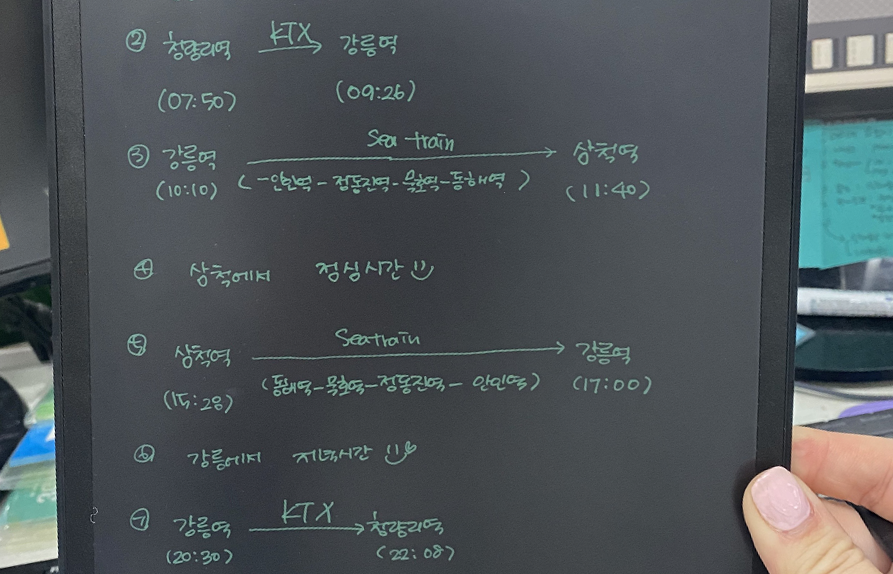 ② 청량리역 KTX 강릉역
(07:50) (09:26)
③ 강릉역 Sea train 삼척역
(10:10) (-안인역-정동진역-묵호역-동해역) (11:40)
④ 삼척에서 점심시간
⑤ 삼척역 Seatrain 강릉역
(15:28) (동해역-묵호역-정동진역-안인역) (17:00)
⑥ 강릉에서 저녁시간
⑦ 강릉역 KTX 청량리역
(20:30) (22:08)